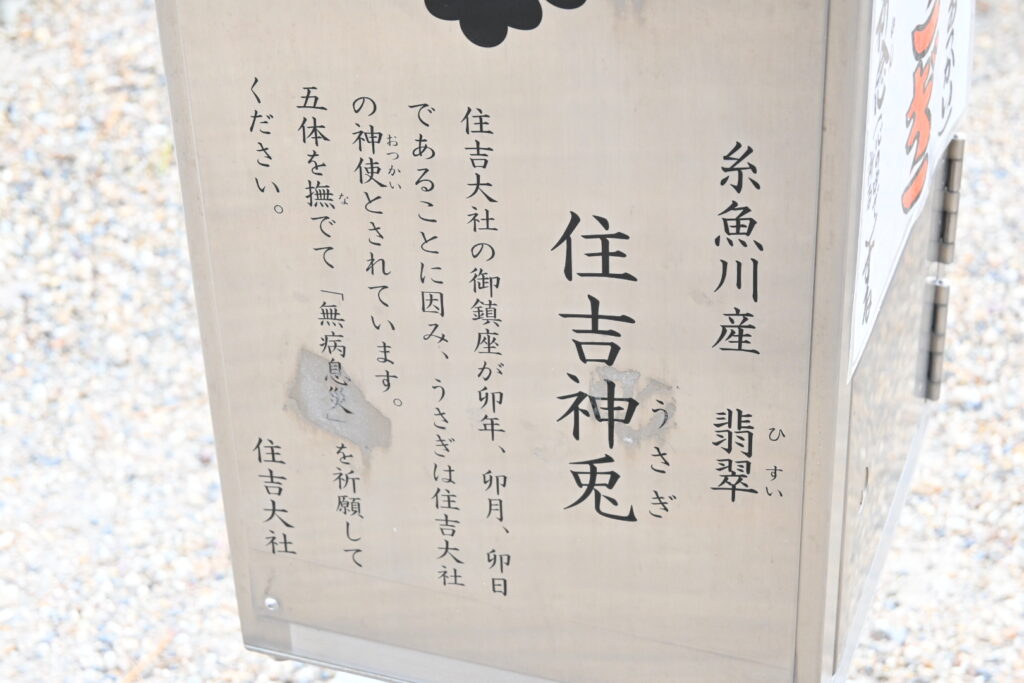 糸魚川産 翡翠
ひすい
住吉神兎
うさぎ
住吉大社の御鎮座が卯年、卯月、卯日
であることに因み、うさぎは住吉大社
の神使とされています。
おつかい
五体を撫でて「無病息災」を祈願して
な
ください。
住吉大社